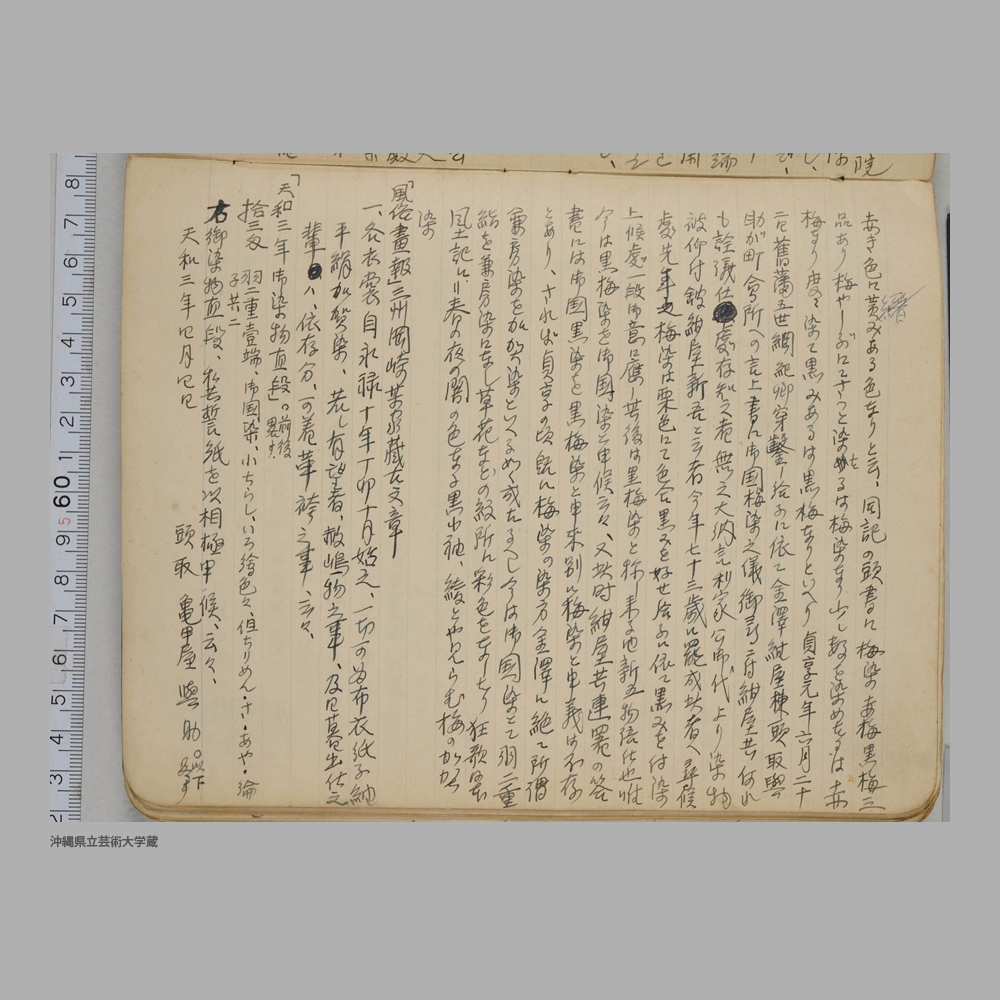 赤き色に黄みある色なりと云、同記の頭書に梅染赤梅黒梅三
品あり梅やしぶにてさつと染たるは梅染なり少し数を染めたるは赤
梅なり度々染て黒みあるは黒梅なりといへり貞享元年六月二十
二日舊藩五世綱紀卿穿鑿ノ給ふに依て金澤紺屋棟頭取與
助が町会所への言上書に御国梅染之儀御尋に付紺屋共何れ
も詮議仕處存知之者無之大納言利家公御代より染物
被仰付紺屋新五と云者今年七十三歳に罷成此者へ尋候
處先年梅染は栗色にて色合黒みを好せ給ふに依て黒みを付染
上候處一段御意に應し其後は黒梅染と称し来る由新五物語仕也唯
今は黒梅染を御国染と申候云々、又此時紺屋共連署の答
書には御国黒染を黒梅染と申来別に梅染と申義は不存
とあり、され出貞享の頃既に梅染の染方金澤に絶て所謂
兼房染をかが染といへるめく或たるべし今は御国染とて羽二重
絹を兼房染になし草花などの紋所に彩色をなせり狂歌
風土記に春の夜の闇の色なす黒小袖、綾とやみらむ梅のかが
染
「風俗畫報」三州岡崎某家蔵古文章
一、各衣裳自永禄十年丁卯十月始之、一切可為布衣紙子紬
平絹加賀染、若し有望者、嶋物之事、及日暮出仕之
輩ハ、依存分、可着革袴之事、云々、
「天和三年御染物直段」。前後畧す。
拾三匁 羽二重壹端、御国染、小ちらし、いろ繪色々、但ちりめん・さ・あや・綸
子共に
右御染物直段、私共誓紙を以相極申候、云々、
天和三年巳月巳日
頭取 亀甲屋與助。以下畧す
沖縄県立芸術大学蔵